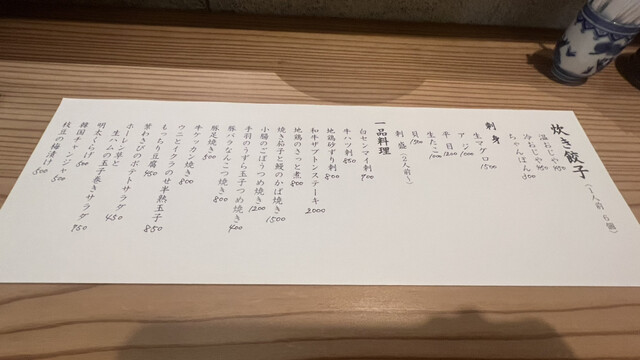 炊き餃子（1人前 6個）
温おじや 450
冷おじや 450
ちゃんぽん 500
刺身
生マグロ 1500
アジ 1000
平目 1200
生たこ 1000
貝 1500
刺盛（2人前〜）
一品料理
白センマイ刺 900
牛ハツ刺 850
地鶏砂ずり刺 800
和牛ザブトンステーキ 2000
地鶏のさっと煮 800
焼き茄子と鰻のかば焼き 1500
小腸のごぼうつめ焼き 1200
手羽のうずら玉子つめ焼き 400
豚バラなんこつ焼き 800
豚足焼き 500
牛ゲッカン焼き 800
ウニとイクラのせ半熟玉子 850
もっちり豆腐 450
葉わさびのポテトサラダ 450
ホーレン草と
生ハムの玉子巻きサラダ 950
明太くらげ 500
韓国チャンジャ 500
枝豆の梅漬け 500